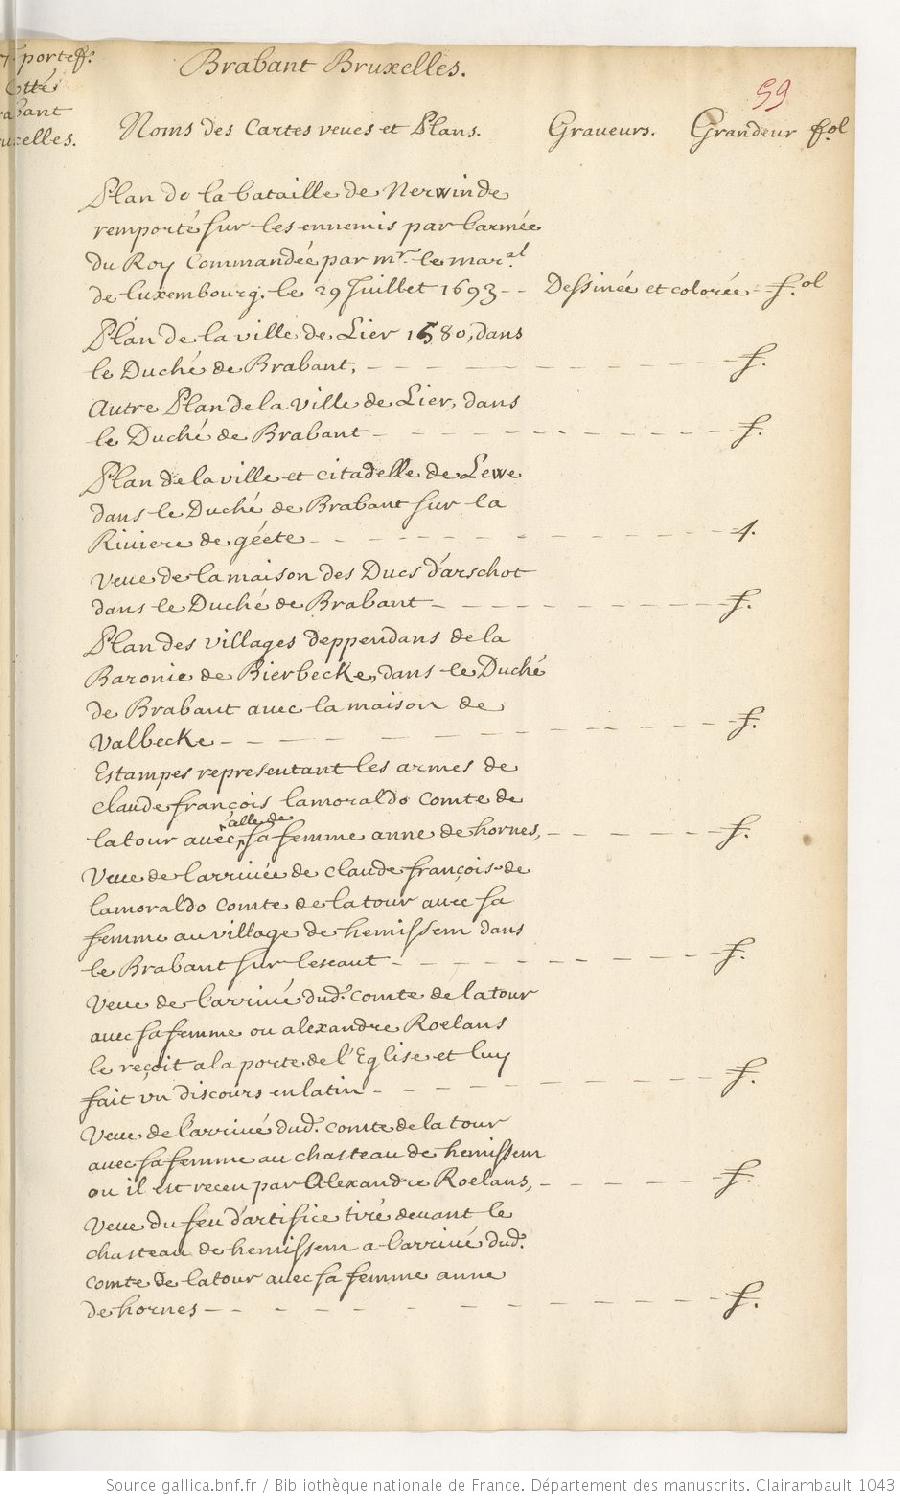 portef.
Cotté
Brabant Bruxelles.
59
Noms des Cartes veues et Plans. Graveurs. Grandeur fol
Plan de la bataille de Nerwinde
remporté sur les ennemis par l'armée
du Roy Commandée par mr. le maral
de luxembourg, le 29 Juillet 1693 - - Dessinée et colorée - fol
Plan de la ville de Lier 1580, dans
le Duché de Brabant, - - - - - - - f.
Autre Plan de la ville de Lier, dans
le Duché de Brabant - - - - - - - f.
Plan de la ville et citadelle de Lewe
dans le Duché de Brabant sur la
Riviere de géete - - - - - - - 4.
Veue de la maison des Ducs d'arschot
dans le Duché de Brabant - - - - - - - f.
Plan des villages deppendans de la
Baronie de Bierbecke, dans le Duché
de Brabant avec la maison de
Valbecke - - - - - - - f.
Estampes representant les armes de
claude françois lamoraldo comte de
latour avec celle de sa femme anne de hornes, - - - - - f.
Veue de l'arrivée de claude françois de
lamoraldo comte de latour avec sa
femme au village de hemissem dans
le Brabant sur lescaut - - - - - - - f.
Veue de l'arrivé dud. comte de latour
avec sa femme ou alexandre Roelans
le reçoit a la porte de l'Eglise et luy
fait un discours en latin - - - - - - - f.
Veue de l'arrivé dud. comte de la tour
avec sa femme au chasteau de hemissem
ou il est receu par Alexandre Roelans, - - - - - f.
Veue du feu d'artifice tiré devant le
chasteau de hemissem a l'arrivé dud.
comte de latour avec sa femme anne
de hornes - - - - - - - f.
Source gallica.bnf.fr / Bibliothèque nationale de France. Département des manuscrits. Clairambault 1043